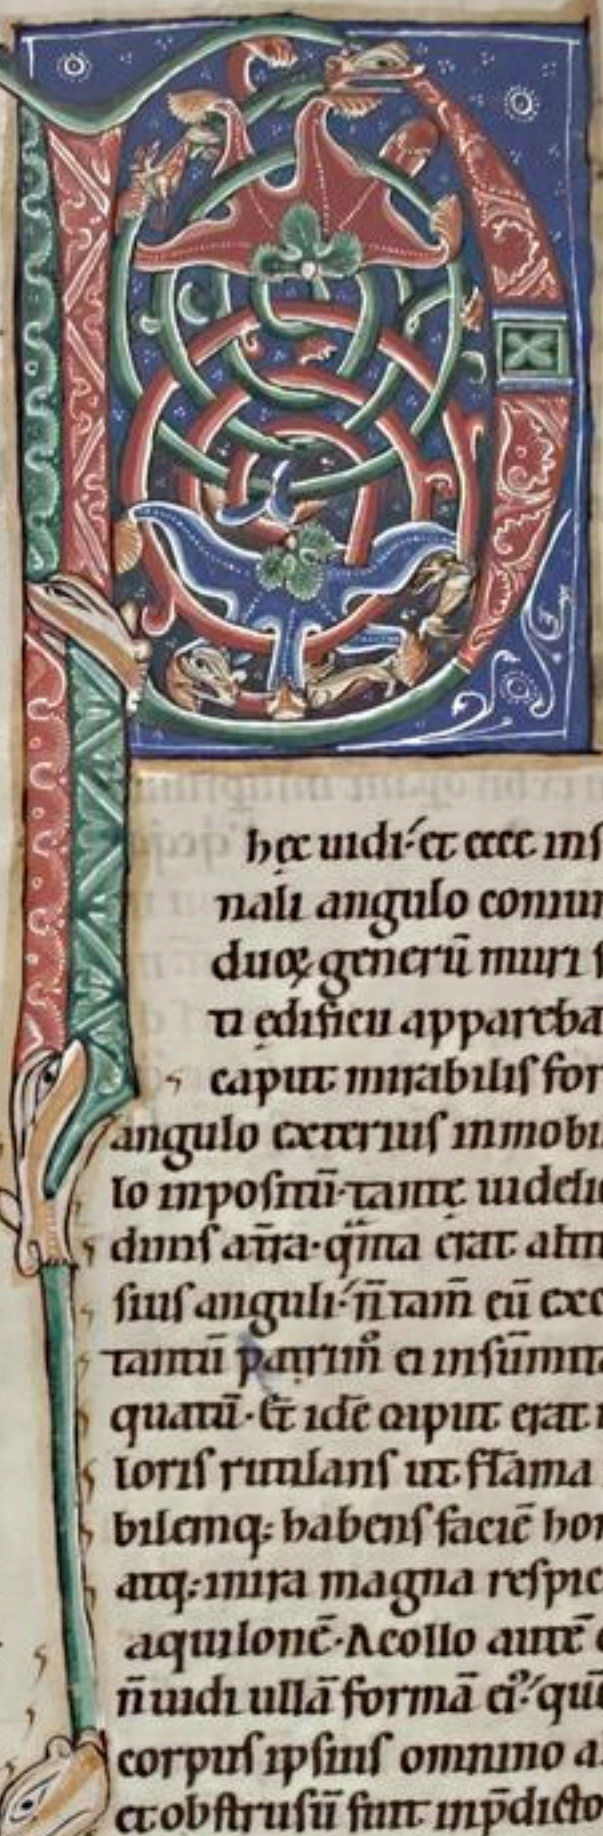 P
hęc uidi·́et ecce inſ
nali angulo coniun
duoꝝ generū muri ſ
ti ędificii appareba
caput mirabiliſ for
angulo exteriuſ inmobi
lo inpoſitū·tantę uidelic
diniſ at̄ra·q̄nta erat altit
ſiuſ anguli·́n̄ tam̄ eū exc
tantū ei inſūmita
quatū·Et idē caput erat
loriſ rutilanſ ut flāma
bilemq; habenſ faciē hom
atq; in ira magna reſpic
aquilonē·A collo autē
n̄ uidi ullā formā ei᷒·́quō
corpuſ ipſiuſ omnino a
et obſtruſū fuit in p̄dicto